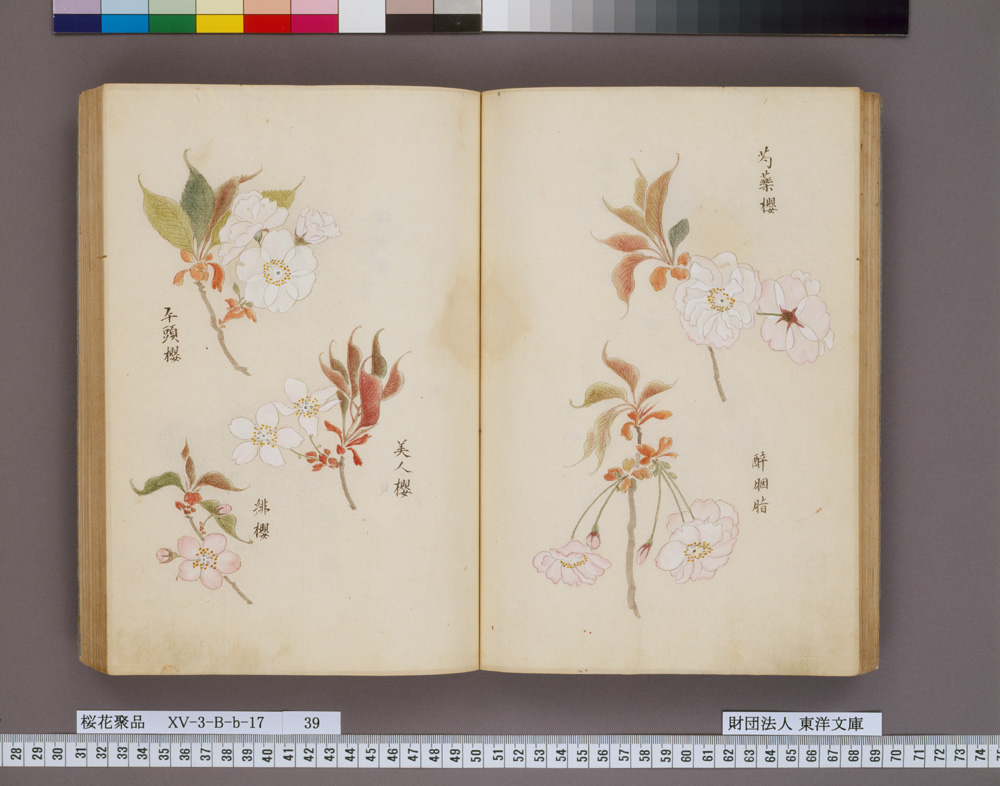 芍藥櫻
醉胭脂
平頭櫻
美人櫻
緋櫻
桜花聚品 XV-3-B-b-17 39
財団法人 東洋文庫
28 29 30 31 32 33 34 35 36 37 38 39 40 41 42 43 44 45 46 47 48 49 50 51 52 53 54 55 56 57 58 59 60 61 62 63 64 65 66 67 68 69 70 71 72 73 74